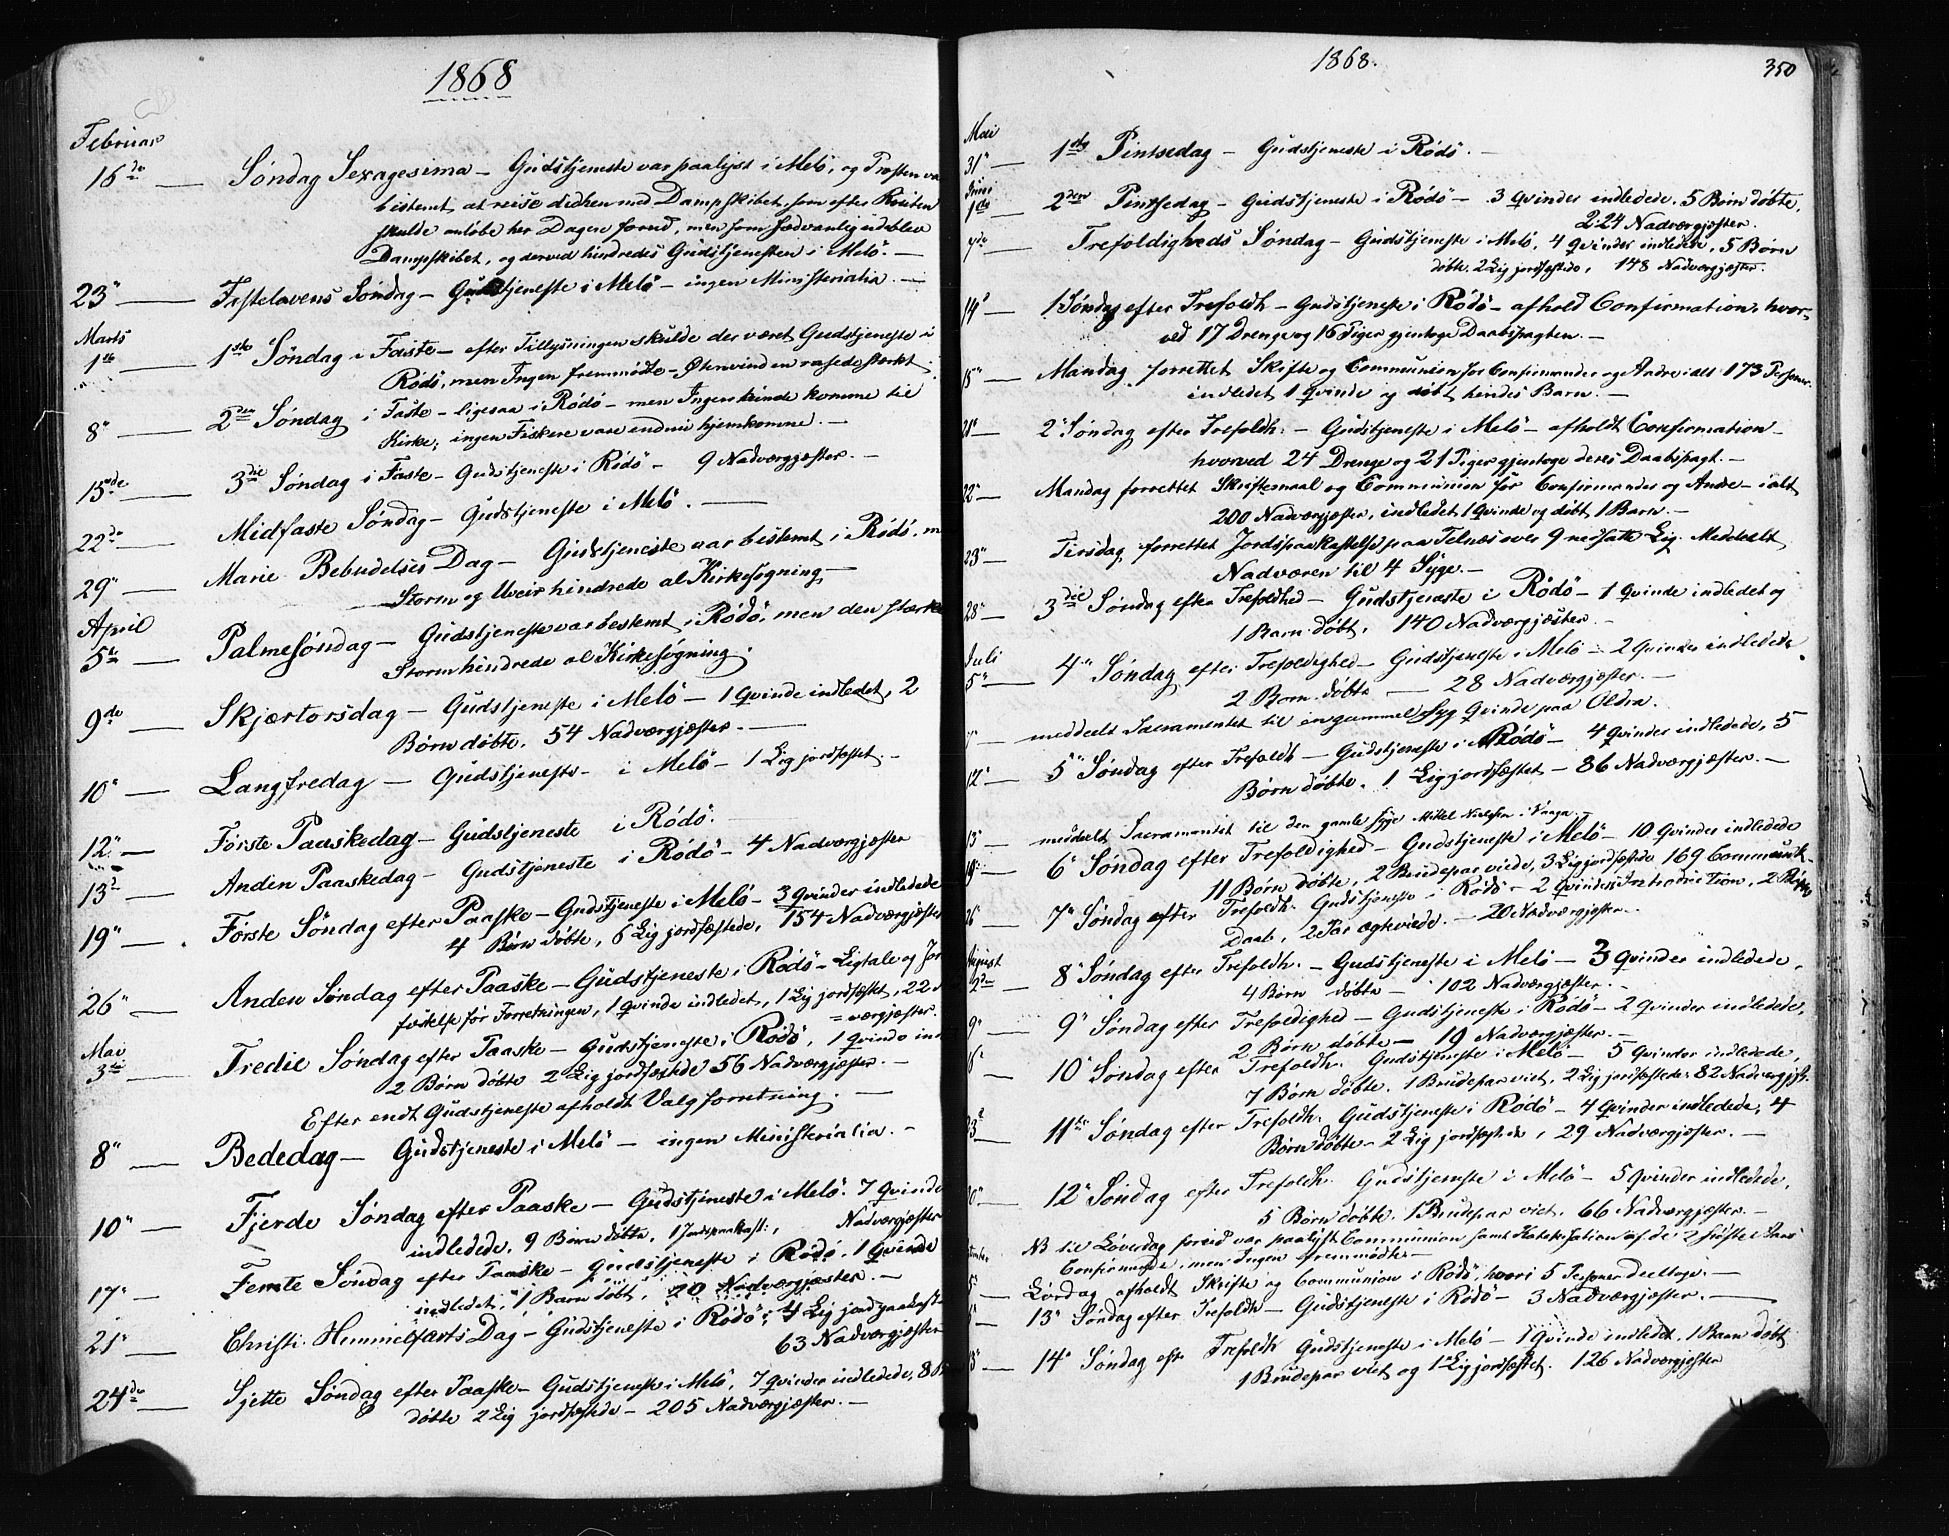 1868
Februar
16de — Søndag Sexagesima – Gudstjeneste var paalyst i Melö, og Præsten va
bestemt at reise didhen med Dampskibet, som efter Routen
skulde anløbe her Dagen forud, men som sædvanlig udeblev
Dampskibet, og derved hindredes Gudstjenesten i Melö. —
23" — Fastelavens Søndag – Gudstjeneste i Melö – ingen Ministerialia. —
Marts
1ste 1ste Søndag i Faste – efter Tillysningen skulde der været Gudstjeneste i
Rödö, men Ingen fremmödte – Østenvinden rasede stærkt.
8" — 2den Søndag i Faste – ligesaa i Rödö – men Ingen kunde komme til
Kirke, ingen Fiskere vare endnu hjemkomne. —
15de — 3die Søndag i Faste – Gudstjeneste i Rödö – 9 Nadvergjæster. —
22de — Midfaste Søndag – Gudstjeneste i Melö. —
29" — Marie Bebudelses Dag – Gudstjeneste var bestemt i Rödö, m
Storm og Uveir hindrede al Kirkesøgning —
April
5te — Palmesøndag – Gudstjeneste var bestemt i Rödö, men den stærke
Storm hindrede al Kirkesøgning.
9de — Skjærtorsdag – Gudstjeneste i Melö – 1 Qvinde indledet, 2
Børn døbte, 54 Nadværgjæster. —
10" — Langfredag – Gudstjeneste – i Melö – 1 Lig jordfæstet. —
12" — Første Paaskedag – Gudstjeneste i Rödö. —
13d — Anden Paaskedag – Gudstjeneste i Rödö – 4 Nadværgjæster
19" — Første Søndag efter Paaske – Gudstjeneste i Melö – 3 Qvinder indledede
4 Børn døbte, 6 Lig jordfæstede, 154 Nadværgjæster
26" — Anden Søndag efter Paaske – Gudstjeneste i Rödö – Ligtale og Jor
fæstelse før Forretningen, 1 Qvinde indledet, 1 Lig jordfæstet, 22
= værgjæster.
Mai
3die — Tredie Søndag efter Paaske – Gudstjeneste i Rödö, 1 Qvinde in
2 Børn døbte 2 Lig jordfæstede 56 Nadværgjæster. —
Efter endt Gudstjeneste afholdt Valgforretning. —
8" — Bededag – Gudstjeneste i Melö – ingen Ministerialia. –
10" — Fjerde Søndag efter Paaske – Gudstjeneste i Melö. 7 Qvinde
indledede, 9 Børn døbte, 1 Jordpaakast:, Nadværgjæster
17" — Femte Søndag efter Paaske – Gudstjeneste i Rödö, 1 Qvinde
indledet, 1 Barn døbt, 20 Nadværgjæster. —
21" — Christi Himmelfarts Dag – Gudstjeneste i Rödö, 4 Lig jordpaakast
63 Nadværgjæster
24de — Sjette Søndag efter Paaske – Gudstjeneste i Melö, 7 Qvinder indledede, 8 B
døbte 2 Lig jordfæstede – 205 Nadværgjæster. —
1868.
350
Mai
31" — 1ste Pintsedag – Gudstjeneste i Rödö. —
Juni
1ste — 2den Pintsedag – Gudstjeneste i Rödö – 3 Qvinder indledede, 5 Børn døbte,
224 Nadværgjæster.
7de — Trefoldigheds Søndag – Gudstjeneste i Melö, 4 Qvinder indledede, 5 Børn
døbte, 2 Lig jordfæstede, 148 Nadværgjæster.
14d — 1 Søndag efter Trefoldh – Gudstjeneste i Rödö – afhold Confirmation, hvor-
ved 17 Drenge og 16 Piger gjentoge Daabspagten. —
15" — Mandag forrettet Skrifte og Communion for Confirmander og Andre i alt 173 Personer.
indledet 1 Qvinde og døbt hendes Barn. —
21" — 2" Søndag efter Trefoldh. – Gudstjeneste i Melö – afholdt Confirmation –
hvorved 24 Drenge og 21 Piger gjentoge deres Daabspagt. —
22" — Mandag forrettet Skriftemaal og Communion for Confirmander og Andre – i alt
200 Nadværgjæster, indledet 1 Qvinde og døbt 1 Barn. —
23" — Tirsdag forrettet Jordspaakastelse paa Telnæs over 9 nedsatte Lig. Meddeelt
Nadveren til 4 Syge. —
28" — 3die Søndag efter Trefoldhed – Gudstjeneste i Rödö – 1 Qvinde indledet og
1 Barn døbt, 140 Nadværgjæster. —
Juli
5" — 4" Søndag efter Trefoldighed – Gudstjeneste i Melö – 2 Qvinder indledede
2 Børn døbte — 28 Nadværgjæster. —
— meddeelt Sacramentet til en gammel syg Qvinde paa Oldra.
12" — 5" Søndag efter Trefoldh – Gudstjeneste i Rödö – 4 Qvinder indledede, 5
Børn døbte, 1 Lig jordfæstet – 86 Nadværgjæster. —
13" — meddeelt Sacramentet til den gamle syge Mikel Nielsen i Vaaga.
19" — 6" Søndag efter Trefoldighed – Gudstjeneste i Melö – 10 Qvinder indledede
11 Børn døbte, 2 Brudepar viede, 3 Lig jordfæstede 169 Communik-
26" — 7" Søndag efter Trefoldh. Gudstjeneste i Rödö – 2 Qvinders Introduction, 2 Børns
Daab, 2 Par ægteviede. – 20 Nadværgjæster. —
August
2den — 8" Søndag efter Trefoldh. – Gudstjeneste i Melö – 3 Qvinder indledede,
4 Børn døbte – 102 Nadværgjæster. —
9" — 9" Søndag efter Trefoldighed – Gudstjeneste i Rödö – 2 Qvinder indledede,
2 Børn døbte – 19 Nadværgjæster. —
6" — 10" Søndag efter Trefoldh. Gudstjeneste i Melö – 5 Qvinder indledede,
7 Børn døbte. 1 Brudepar viet, 2 Lig jordfæstede: 82 Nadværgjæst.
23d — 11te Søndag efter Trefoldh. Gudstjeneste i Rödö – 4 Qvinder indledede, 4
Børn døbte – 2 Lig jordfæstede, 29 Nadværgjæster. —
30" — 12" Søndag efter Trefoldh. Gudstjeneste i Melö – 5 Qvinder indledede,
5 Børn døbte. 1 Brudepar viet, 66 Nadværgjæster. —
NB til Løverdag forud var paalyst Communion samt Katekisation af de 2 sidste Aars
Confirmerede, men Ingen fremmødte —
5" — Lørdag afholdt Skrifte og Communion i Rödö, hvori 5 Personer deeltoge. —
6" — 13" Søndag efter Trefoldh – Gudstjeneste i Rödö – 3 Nadværgjæster. —
13" — 14" Søndag eftr Trefoldh Gudstjeneste i Melö – 1 Qvinde indledet, 1 Barn døbt
1 Brudepar viet og 1 Lig jordfæstet. 126 Nadværgjæster